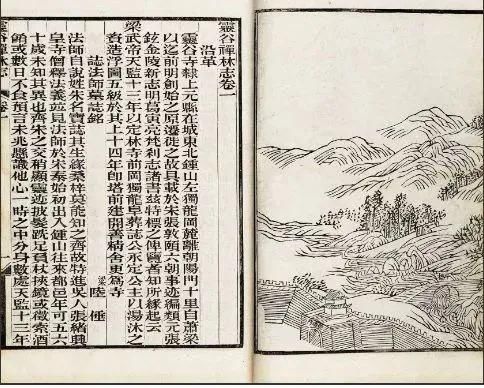 靈谷禪林志卷一
沿革
靈谷寺隸上元縣在城東北鍾山左獨龍岡麓離朝陽門十里自蕭梁
以迄前明創始之原遷徙之故具載於宋張敦頤六朝事迹編類元張
鉉金陵新志明葛寅亮梵刹志諸書茲特標之俾覽者知所緣起云
梁武帝天監十三年以定林寺前岡獨龍阜葬誌公永定公主以湯沐之
資造浮圖五級於其上十四年即塔前建開善精舍更爲寺
誌法師墓誌銘
梁 陸倕
法師自說姓朱名寶誌其生緣桑梓莫能知之齊故特進吳人張緒興
皇寺僧釋法義並見法師於宋泰始初出入鍾山往來都邑年可五六
十歲未知其異也齊宋之交稍顯靈迹被髮跣足負杖挾鏡或徵索酒
餚或數日不食預言未兆懸識他心一時之中分身數處天監十三年
靈谷禪林志
卷一
一